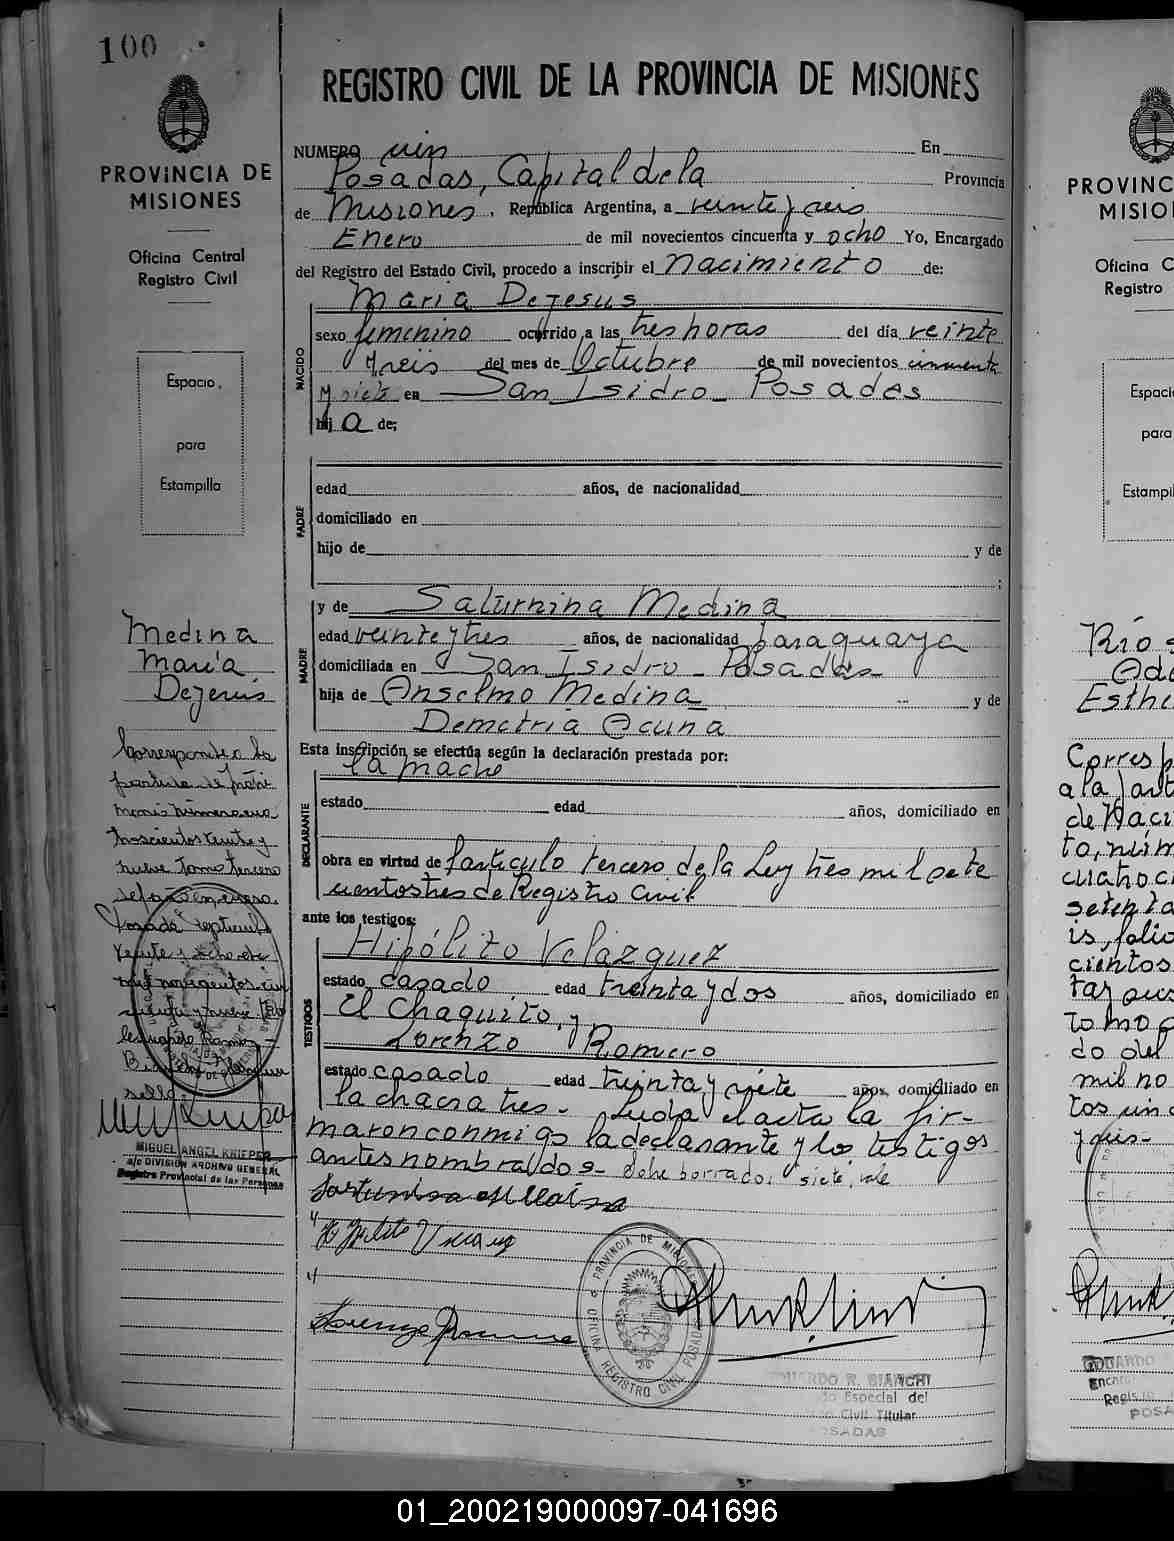 100
REGISTRO CIVIL DE LA PROVINCIA DE MISIONES
PROVINCIA DE
MISIONES
Oficina Central
Registro Civil
Espacio
para
Estampilla
NUMERO cien En
Posadas, Capital de la Provincia
de Misiones, República Argentina, a veinte y seis
Enero de mil novecientos cincuenta y ocho Yo, Encargado
del Registro del Estado Civil, procedo a inscribir el nacimiento de:
NACIDO
Maria Dejesus
sexo femenino ocurrido a las tres horas del día veinte
y seis del mes de Octubre de mil novecientos cincuenta
y siete en San Isidro - Posadas
hija de;
PADRE
edad años, de nacionalidad
domiciliado en
hijo de y de
;
MADRE
y de Saturnina Medina
edad veinte y tres años, de nacionalidad paraguaya
domiciliada en San Isidro - Posadas
hija de Anselmo Medina y de
Demetria Acuña
Esta inscripción se efectúa según la declaración prestada por:
DECLARANTE
la madre
estado edad años, domiciliado en
obra en virtud de l'articulo tercero de la Ley tres mil sete
cientos tres de Registro Civil
ante los testigos:
TESTIGOS
Hipólito Velázquez
estado casado edad treinta y dos años, domiciliado en
El Chaquito, y
Lorenzo Romero
estado casado edad treinta y siete años, domiciliado en
la chacra tres- Leida el acta la fir-
maron conmigo la declarante y los testigos
antes nombrados- sobre borrado: siete, vale
Medina
Maria
Dejesus
Corresponde a la
partida de
nueve tomo tercero
MIGUEL ANGEL KRIEGER
a/c DIVISION ARCHIVO GENERAL
Registro Provincial de las Personas
PROVINCIA DE MISIONES
OFICINA REGISTRO CIVIL POSADAS
EDUARDO R. BIANCHI
Especial del
Civil Titular
POSADAS
PROVINC
MISIO
Oficina C
Registro
Espaci
para
Estampi
Ríos
Esthe
Corresp
a la part
de Naci
to, núm
cuatro ci
setenta
is, folio
cientos
tomo
do del
mil no
tos cin
y seis-
EDUARDO
POSA
01_200219000097-041696